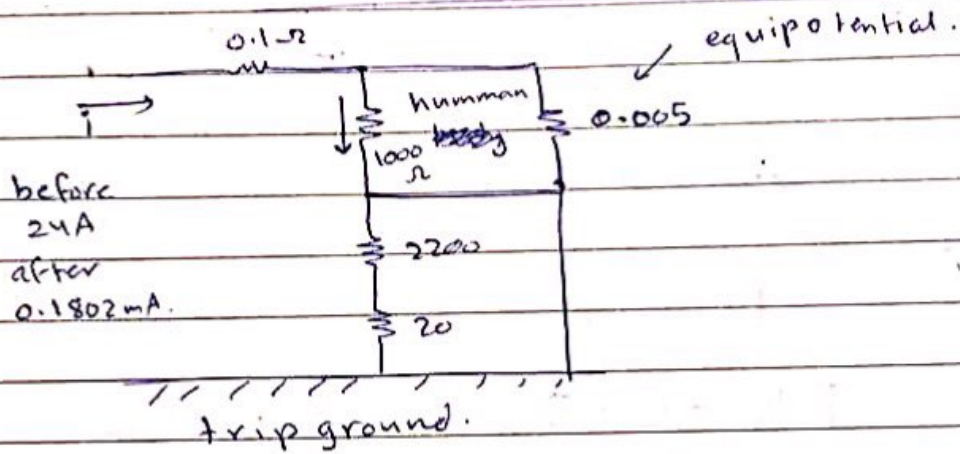 0.1 Ω
equipotential.
i
humman
0.005
1000
Ω
before
24A
after
0.1802mA.
2200
20
trip ground.